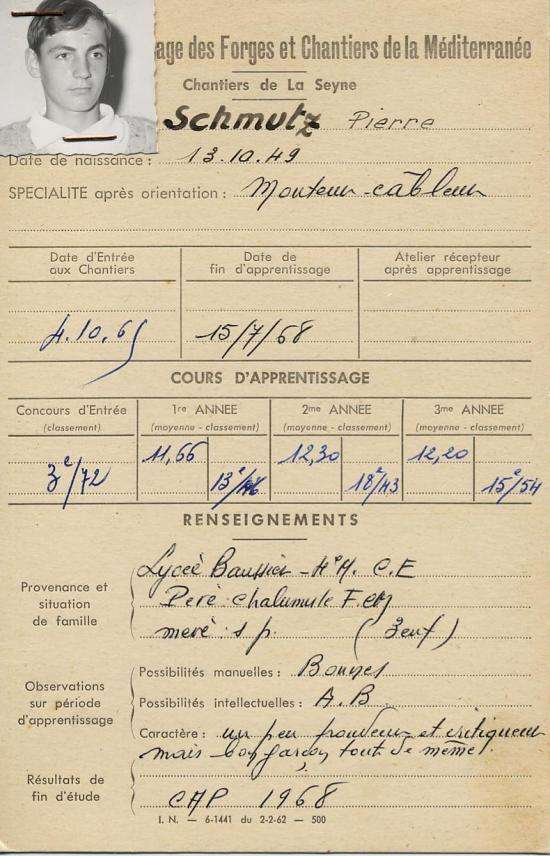 age des Forges et Chantiers de la Méditerranée
Chantiers de La Seyne
Schmutz Pierre
Date de naissance : 13.10.49
SPECIALITE après orientation : Monteur-câbleur
Date d'Entrée aux Chantiers
Date de fin d'apprentissage
Atelier récepteur après apprentissage
4.10.65 15/7/68
COURS D'APPRENTISSAGE
Concours d'Entrée (classement)
1re ANNEE (moyenne - classement)
2me ANNEE (moyenne - classement)
3me ANNEE (moyenne - classement)
3e/72 11,66 13e/ 12,30 18e/43 12,20 15e/54
RENSEIGNEMENTS
Provenance et situation de famille
Lycée Baussier - C.E
Père chalumiste F.CM
mère : s.p. (3 enf)
Observations sur période d'apprentissage
Possibilités manuelles : Bonnes
Possibilités intellectuelles : A.B
Caractère : un peu frondeur et critiqueur
mais bon garçon tout de même.
Résultats de fin d'étude
CAP 1968
I. N. — 6-1441 du 2-2-62 — 500